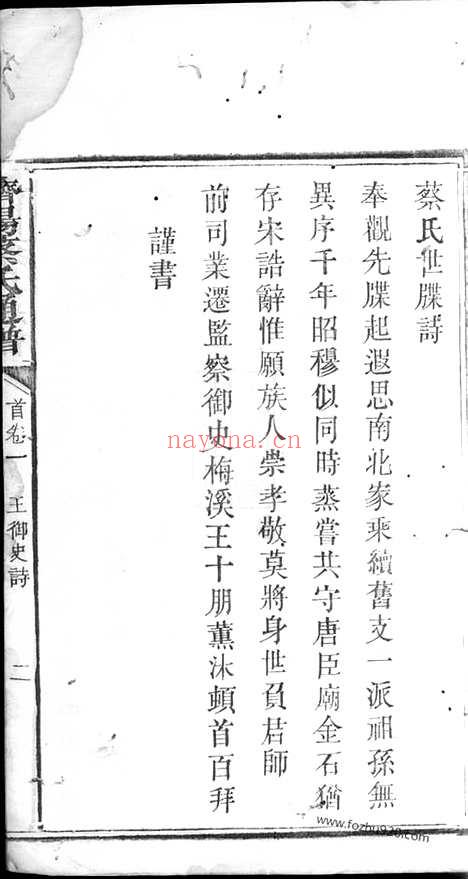 蔡氏世牒詩
奉觀先牒起遐思南北家乘續舊支一派祖孫無
異序千年昭穆似同時蒸嘗共守唐臣廟金石猶
存宋誥辭惟願族人崇孝敬莫將身世負
師
前司業遷監察御史梅溪王十朋薰沐頓首百拜
謹書
濟陽蔡氏通譜
首卷一
王御史詩
二
nayona.cn
www.fozhu920.com